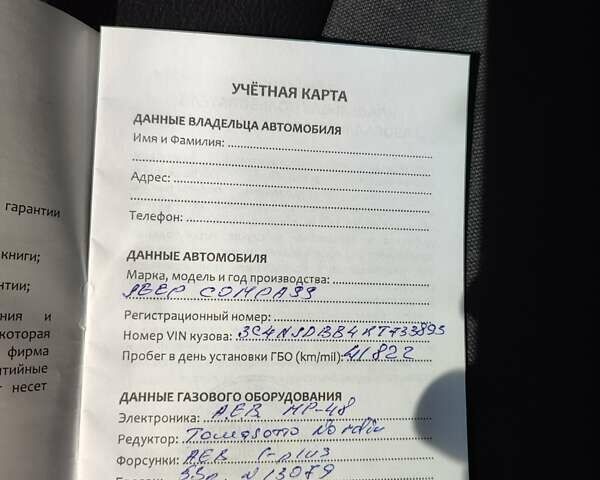 гарантии
книги;
нтии;
ния и
которая
фирма
нтийные
г несет
УЧЁТНАЯ КАРТА
ДАННЫЕ ВЛАДЕЛЬЦА АВТОМОБИЛЯ
Имя и Фамилия:
Адрес:
Телефон:
ДАННЫЕ АВТОМОБИЛЯ
Марка, модель и год производства:
JEEP COMPASS
Регистрационный номер:
Номер VIN кузова: 3C4NJDBB4KT733895
Пробег в день установки ГБО (km/mil): 41822
ДАННЫЕ ГАЗОВОГО ОБОРУДОВАНИЯ
Электроника: AEB MP-48
Редуктор: Tomasetto Nordic
Форсунки: AEB I-plus
53л N13079